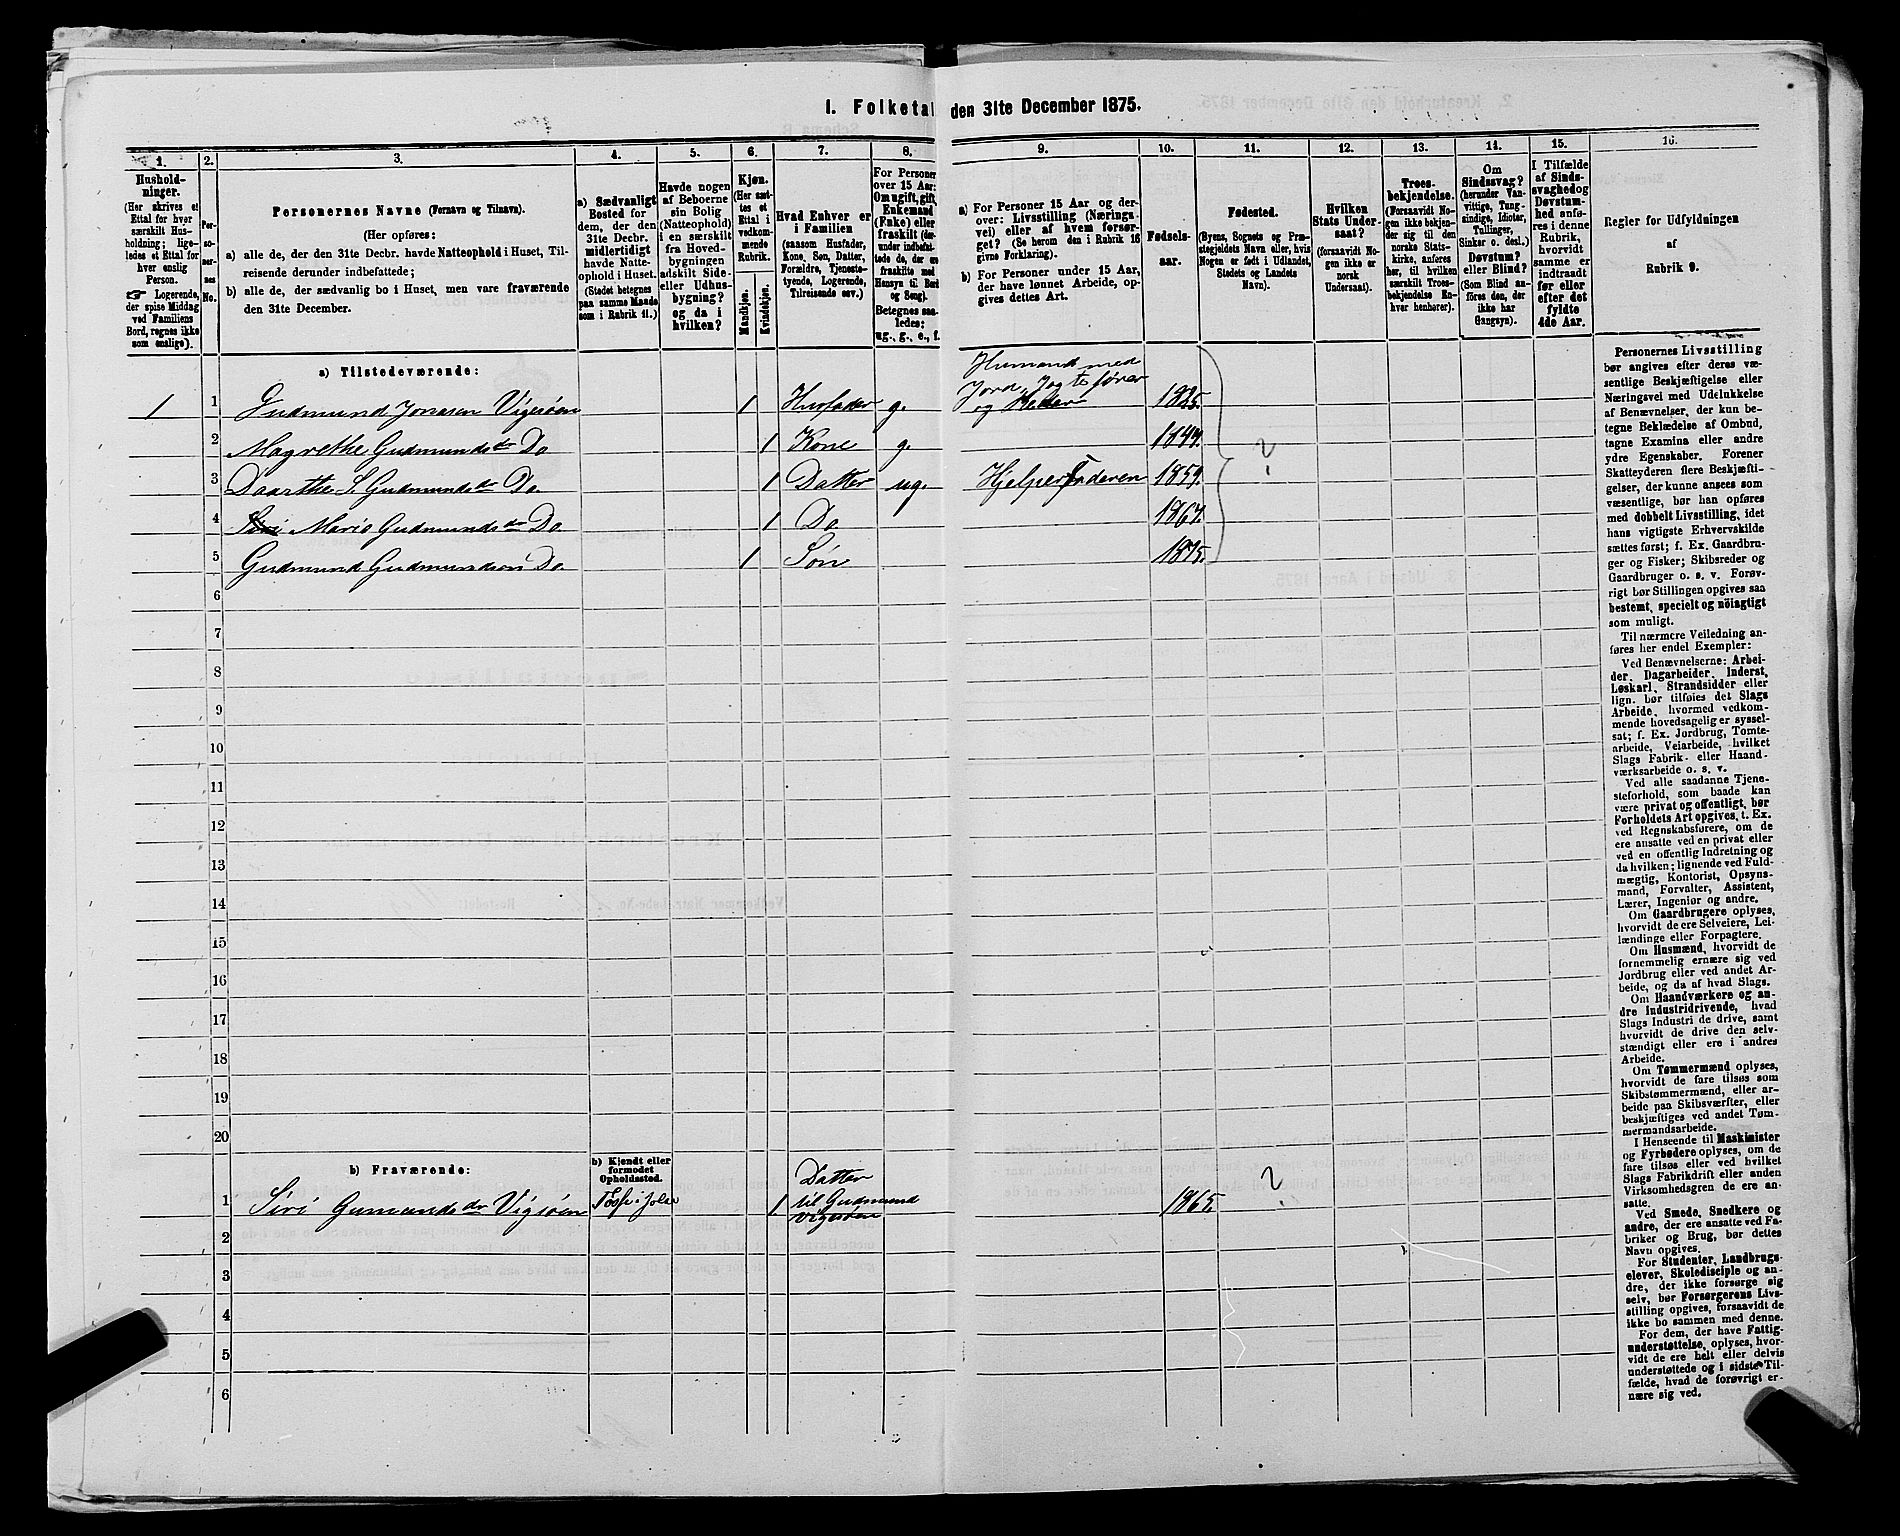 I. Folketal den 31te December 1875.
1. 2. 3. 4. 5. 6. 7. 8. 9. 10. 11. 12. 13. 14. 15. 16.
Hushold-
ninger.
(Her skrives et
Ettal for hver
særskilt Hus-
holdning; lige-
ledes et Ettal for
hver enslig
Person.
☞ Logerende,
der spise Middag
ved Familiens
Bord, regnes ikke
som enslige).
Per-
so-
ner-
nes
No.
Personernes Navne (Fornavn og Tilnavn).
(Her opføres:
a) alle de, der den 31te Decbr. havde Natteophold i Huset, Til-
reisende derunder indbefattede;
b) alle de, der sædvanlig bo i Huset, men vare fraværende
den 31te December.
a) Sædvanligt
Bosted for
dem, der den
31te Decbr.
midlertidigt
havde Natte-
ophold i Huset.
(Stedet betegnes
paa samme Maade
som i Rubrik 11.)
Havde nogen
af Beboerne
sin Bolig
(Natteophold)
i en særskilt
fra Hoved-
bygningen
adskilt Side-
eller Udhus-
bygning?
og da i
hvilken?
Kjøn.
(Her sæt-
tes et
Ettal i
vedkom-
mende
Rubrik.
Mandkjøn.
Kvindekjøn.
Hvad Enhver er
i Familien
(saasom Husfader,
Kone, Søn, Datter,
Forældre, Tjeneste-
tyende, Logerende,
Tilreisende osv.)
For Personer
over 15 Aar:
Om ugift, gift,
Enkemand
(Enke) eller
fraskilt (der-
under indbefat-
tede de, der ere
fraskilte med
Hensyn til Bord
og Seng).
Betegnes saa-
ledes:
ug., g., e., f.
a) For Personer 15 Aar og der-
over: Livsstilling (Nærings-
vei) eller af hvem forsør-
get? (Se herom den i Rubrik 16
givne Forklaring).
b) For Personer under 15 Aar,
der have lønnet Arbeide, op-
gives dettes Art.
Fødsels-
aar.
Fødested.
(Byens, Sognets og Præ-
stegjeldets Navn eller, hvis
Nogen er født i Udlandet,
Stedets og Landets
Navn).
Hvilken
Stats Under-
saat?
(forsaavidt No-
gen ikke er
norsk
Undersaat).
Troes-
bekjendelse.
(Forsaavidt No-
gen ikke bekjen-
der sig til den
norske Stats-
kirke, anføres
her, til hvilken
særskilt Troes-
bekjendelse En-
hver henhører).
Om
Sindssvag?
(herunder Van-
vittige, Tung-
sindige, Idioter,
Tullinger,
Sinker o. desl.)
Døvstum?
eller Blind?
(Som Blind an-
føres den, der
ikke har
Gangsyn).
I Tilfælde
af Sinds-
svaghed og
Døvstum-
hed anfø-
res i denne
Rubrik,
hvorvidt
samme er
indtraadt
før eller
efter det
fyldte
4de Aar.
Regler for Udfyldningen
af
Rubrik 9.
a) Tilstedeværende:
1 1 Gudmund Jonasen Vigsøen 1 Husfader g. Husmand med
Jord, Jagtefører
og 1825.
2 Magrethe Gudmundsdr Do 1 Kone g. 1844.
3 Daarthe S. Gudmundsdr Do. 1 Datter ug. Hjelper Faderen 1859. ?
4 Siri Marie Gudmundsdr Do 1 Do 1867.
5 Gudmund Gudmundsen Do. 1 Søn 1875.
6
7
8
9
10
11
12
13
14
15
16
17
18
19
20
b) Fraværende:
b) Kjendt eller
formodet
Opholdssted.
1 Siri Gumundsdr Vigsøen 1 Datter
til Gudmund
Vigesøen 1865. ?
2
3
4
5
6
Personernes Livsstilling
bør angives efter deres væ-
sentlige Beskjæftigelse eller
Næringsvei med Udelukkelse
af Benævnelser, der kun be-
tegne Beklædelse af Ombud,
tagne Examina eller andre
ydre Egenskaber. Forener
Skatteyderen flere Beskjæfti-
gelser, der kunne ansees som
væsentlige, bør han opføres
med dobbelt Livsstilling, idet
hans vigtigste Erhvervskilde
sættes først; f. Ex. Gaardbru-
ger og Fisker; Skibsreder og
Gaardbruger o. s. v. Forøv-
rigt bør Stillingen opgives saa
bestemt, specielt og nöiagtigt
som muligt.
Til nærmere Veiledning an-
føres her endel Exempler:
Ved Benævnelserne: Arbei-
der, Dagarbeider, Inderst,
Løskarl, Strandsidder eller
lign. bør tilføies det Slags
Arbeide, hvormed vedkom-
mende hovedsagelig er syssel-
sat; f. Ex. Jordbrug, Tomte-
arbeide, Veiarbeide, hvilket
Slags Fabrik- eller Haand-
værksarbeide o. s. v.
Ved alle saadanne Tjene-
steforhold, som baade kan
være privat og offentligt, bør
Forholdets Art opgives, t. Ex.
ved Regnskabsførere, om de
ere ansatte ved en privat eller
ved en offentlig Indretning og
da hvilken; lignende ved Fuld-
mægtig, Kontorist, Opsyns-
mand, Forvalter, Assistent,
Lærer, Ingeniør og andre.
Om Gaardbrugere oplyses,
hvorvidt de ere Selveiere, Lei-
lændinge eller Forpagtere.
Om Husmænd, hvorvidt de
fornemmelig ernære sig ved
Jordbrug eller ved andet Ar-
beide, og da af hvad Slags.
Om Haandværkere og an-
dre Industridrivende, hvad
Slags Industri de drive, samt
hvorvidt de drive den selv-
stændigt eller ere i andres
Arbeide.
Om Tømmermænd oplyses,
hvorvidt de fare tilsøs som
Skibstømmermænd, eller ar-
beide paa Skibsværfter, eller
beskjæftiges ved andet Tøm-
mermandsarbeide.
I Henseende til Maskinister
og Fyrbødere oplyses, om de
fare tilsøs eller ved hvilket
Slags Fabrikdrift eller anden
Virksomhedsgren de ere an-
satte.
Ved Smede, Snedkere og
andre, der ere ansatte ved Fa-
briker og Brug, bør dettes
Navn opgives.
For Studenter, Landbrugs-
elever, Skoledisciple og an-
dre, der ikke forsørge sig
selv, bør Forsørgerens Livs-
stilling opgives, forsaavidt de
ikke bo sammen med denne.
For dem, der have Fattig-
understøttelse, oplyses, hvor-
vidt de ere helt eller delvis
understøttede og i sidste Til-
fælde, hvad de forøvrigt er-
nære sig ved.